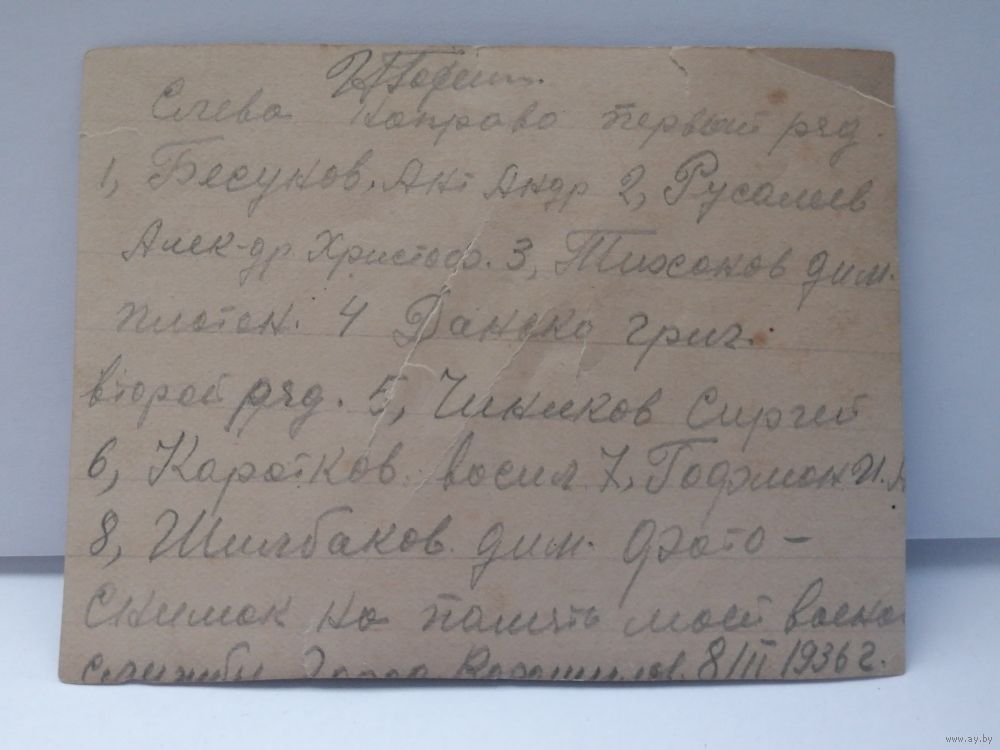 Слева направо первый ряд.
1, Бесунов. Ант Андр 2, Русалеев
Алек-др Христоф. 3, Тихонов дим.
платон. 4 Данско григ.
второй ряд. 5, Чинков Сиргей
6, Каротков. васил 7, Гофман И.
8, Шилбаков. дим. фото-
Снимок на память моей воено
службы Город Ворошилов. 8/III 1936 г.
www.ay.by